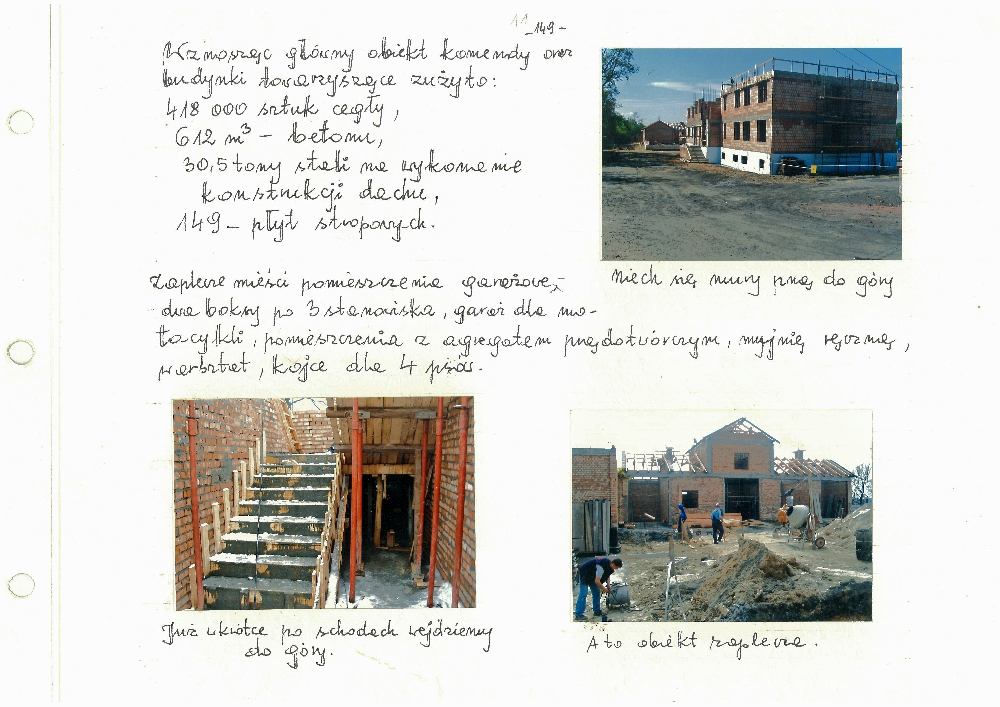 - 149 -
Wznosząc główny obiekt komendy oraz
budynki towarzyszące zużyto:
418 000 sztuk cegły,
612 m³ - betonu,
30,5 tony stali na wykonanie
konstrukcji dachu,
149 - płyt stropowych.
Niech się mury pną do góry
Zaplecze mieści pomieszczenia garażowe,-
dwa boksy po 3 stanowiska, garaż dla mo-
tocykli, pomieszczenia z agregatem prądotwórczym, myjnię ręczną,
warsztat, kojce dla 4 psów.
Już wkrótce po schodach wejdziemy
do góry.
A to obiekt zaplecza.